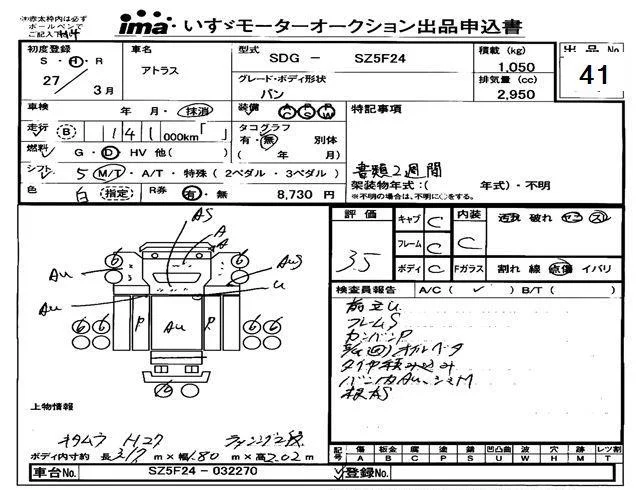 (※)赤太枠内は必ず
ボールペンで
ご記入下さい
ima いすゞモーターオークション出品申込書
初度登録 S・H・R 27 3月
車名 アトラス
型式 SDG - SZ5F24
グレード・ボディ形状 バン
積載 (kg) 1,050
排気量 (cc) 2,950
出品No 41
車検 年 月・抹消
装備 AC PS PW
特記事項
走行 B 141,000km「 」
タコグラフ 有・無 別体 ( 年 月)
燃料 G・D・HV 他( )
シフト 5 M/T・A/T・特殊 (2ペダル・3ペダル)
書類2週間
架装物年式:( 年式)・不明
※不明の場合は、不明に○をする。
色 白 (指定) R券 有・無 8,730 円
評価 3.5
キャブ C 内装 C 汚れ 破れ ヤニ スレ
フレーム C
ボディ C Fガラス 割れ 線 点傷 イバリ
検査員報告 A/C ( ✓ ) B/T ( )
前立U
フレームS
カンバンP
タイヤ積み込み
AS
A
A
6 6
AU AUS
AU U
P AU P
6 6 6 6
上物情報
キタムラ H27
ボディ内寸約 長 317 m×幅 1.80 m×高 2.02 m
記号 傷 A 板金 B 腐 C 塗 P 錆 S 凹凸曲 U 波 W 穴 H 跡 M レツ割 T
車台No. SZ5F24-032270
登録No.